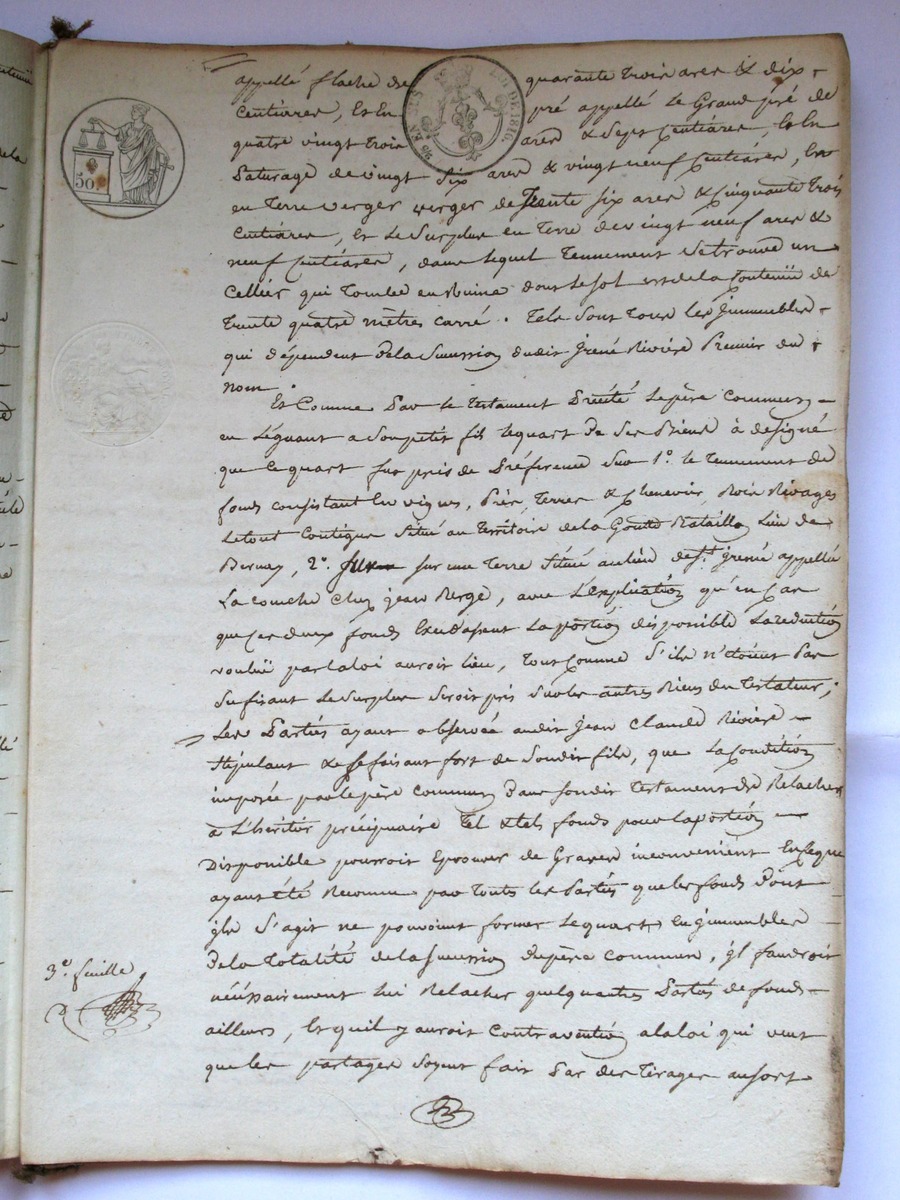 appellé flache de quarante trois ares & dix
Centiares, Et En pré appellé Le Grand pré de
quatre vingt trois ares & Sept Centiares, Et En
paturage de vingt Six ares & vingt neuf Centiares, Et
en Terre verger verger de Trente six ares & Cinquante Trois
Centiares, Et Le Surplus en Terre de vingt neuf ares &
neuf Centiares, dans Lequel Tennement se trouve un
Cellier qui Tombe en Ruine dont Le sol est de la Contenüe de
Trente quatre mètres carré. Tels sont Tous Les Jmmeubles
qui dépendent De la Succession dudit Irené Rivière Premier du
nom.
Et Comme Par le Testament Précité Le père Commun
en Léguant a Son petit fils Le quart De Ses Biens à designé
que Ce quart fut pris de Préference Sur 1°. le Tennement de
fonds consistant En vignes, Près, Terres & Chenevier, Bois Rivages
Le tout Contigus Situé au Territoire de la Goutte Bataillon Lieu de
Bernay, 2°. sur une Terre Située au lieu de St. Irené appellée
La couche Chez Jean Bergé, avec L'Explication qu'en Cas
que Ces deux fonds Excédasent La portion disponible La reduction
voulüe par la loi auroit lieu, Tout Comme S'ils n'étoient Pas
Sufisant Le Surplus Seroit pris Sur les autres Biens du Testateur,
Les Parties ayant observée audit Jean Claude Rivière
Stipulant & se faisant fort de Sondit fils, que La Condition
imposée par le père commun Dans Sondit Testament De Relacher
à L'héritier préciputaire Tel & tels fonds pour La portion
Disponible pourroit Eprouver de Graves inconvenient En Ce que
ayant été Reconnu par Touts Les Parties que les fonds Dont
jls S'agit ne pouvoient former Le quart En Jmmeubles
De la Totalité de la Succession du père commun, jl faudroit
nécéssairement lui Relacher quelqu'autres Parties de fonds
ailleurs, Et qu'il y auroit Contravention a la loi qui veut
que les partages Soyent fait Par des Tirages au sort
3e. feuille
50.